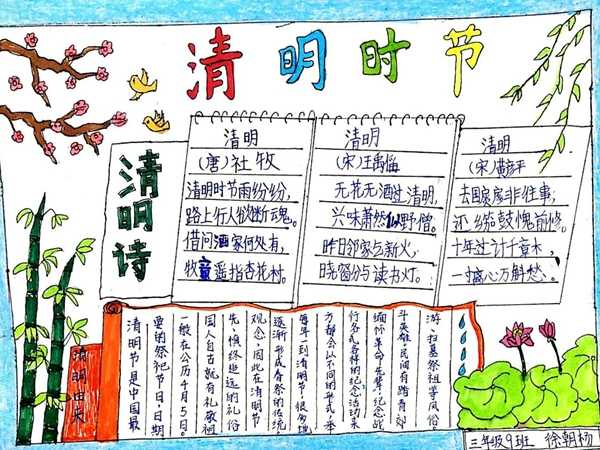 清明时节
清明诗
清明
(唐)社牧
清明时节雨纷纷,
路上行人欲断魂。
借问酒家何处有,
牧童遥指杏花村。
清明
(宋)王禹偁
无花无酒过清明,
兴味萧然似野僧。
昨日邻家乞新火,
晓窗分与读书灯。
清明
(宋)黄彦平
去国家非往事,
还鼓愧前修。
十年过计千章木,
一寸离心万斛愁。
清明由来
清明节是中国最
重的祭祀节日,日期
一般在公历4月5日。
国人自古就有礼敬祖
先、慎终追远的礼俗
观念,因此在清明节
逐渐形成春祭的传统。
每年一到清明节,很多地
方都会以不同的形式,举
行各式各样的纪念活动来
缅怀革命先辈、纪念战
斗英雄,民间有踏青郊
游、扫墓祭祖等风俗。
三年级9班 徐朝杨